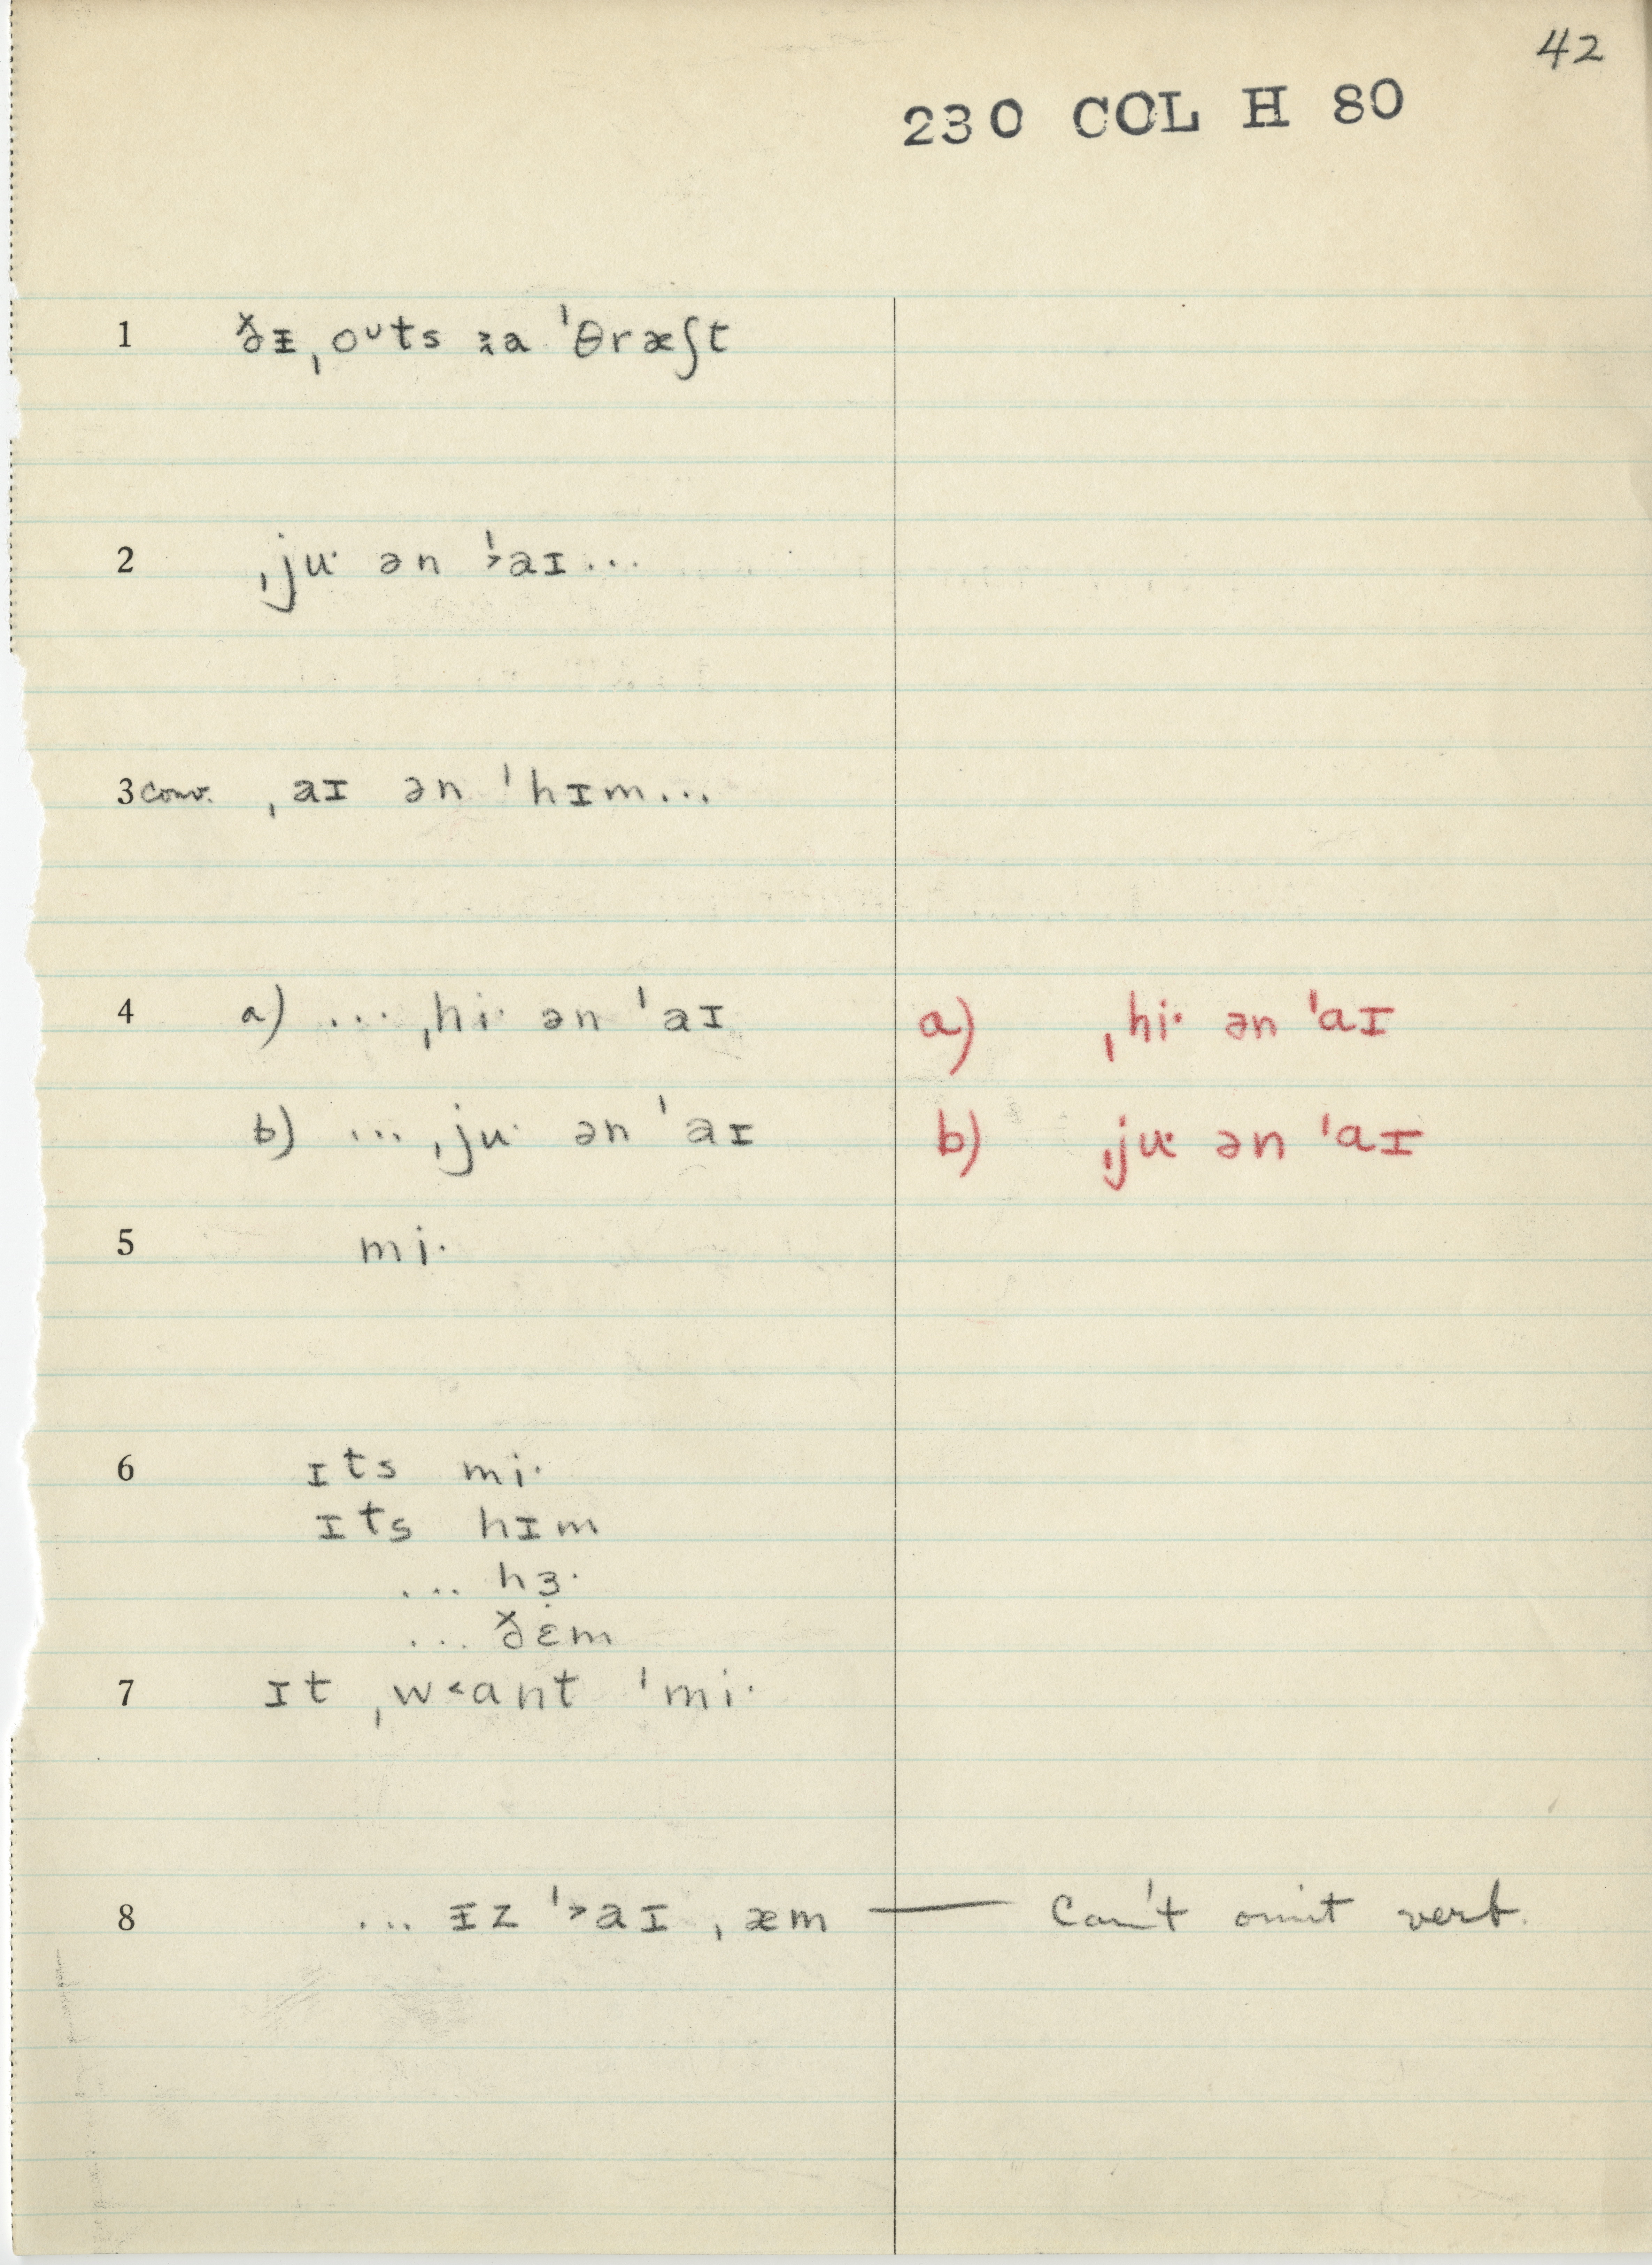 42
230 COL H 80
1 ðᵻ ˌoᶷts ɚa ˈθræʃt
2 ˌjuˑ ən ˈ˃aɪ...
3 conv. ˌaɪ ən ˈhɪm...
4 a) ... ˌhiˑ ən ˈaɪ a) ˌhiˑ ən ˈaɪ
b) ... ˌjuˑ ən ˈaɪ b) ˌjʉˑ ən ˈaɪ
5 miˑ
6 ɪts miˑ
ɪts hɪm
... hɜ̣ˑ
... ðɛm
7 ɪt ˌw˂ɑnt ˈmiˑ
8 ... ᵻz ˈ˃aɪ ˌæm — Can't omit verb.